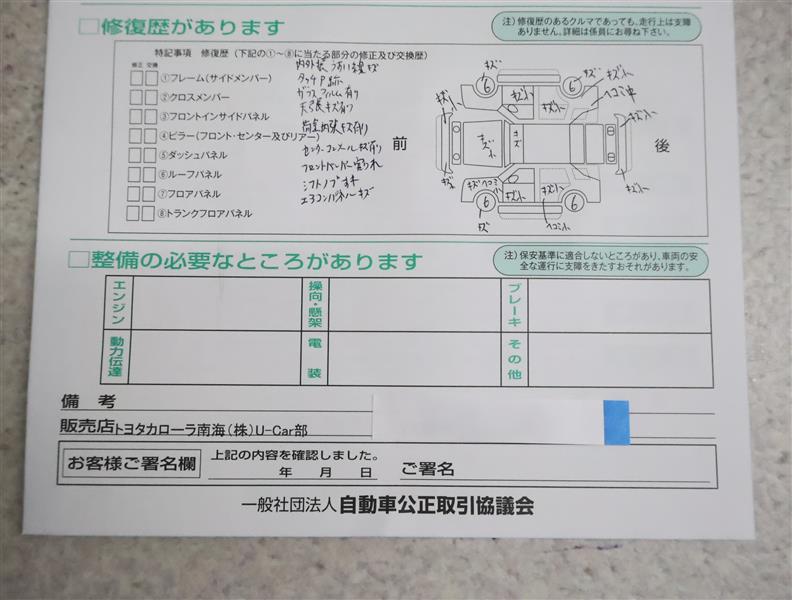 □修復歴があります
注）修復歴のあるクルマであっても、走行上は支障
ありません。詳細は係員にお尋ね下さい。
特記事項 修復歴（下記の①～⑧に当たる部分の修正及び交換歴）
修正 交換
①フレーム(サイドメンバー)
②クロスメンバー
③フロントインサイドパネル
④ピラー(フロント・センター及びリアー)
⑤ダッシュパネル
⑥ルーフパネル
⑦フロアパネル
⑧トランクフロアパネル
ガラスフィルム有り
天張キズ有り
フロントバンパー割れ
エアコンパネルキズ
前
後
キズ
6
キズ
6
キズ小
ヘコミ中
キズ小
キズ
キズ
キズ小
キズ小
キズ小
キズ
6
キズ
6
ヘコミ小
□整備の必要なところがあります
注）保安基準に適合しないところがあり、車両の安
全な運行に支障をきたすおそれがあります。
エンジン
操向・懸架
ブレーキ
動力伝達
電装
その他
備考
販売店トヨタカローラ南海（株）U-Car部
お客様ご署名欄
上記の内容を確認しました。
年 月 日 ご署名
一般社団法人 自動車公正取引協議会